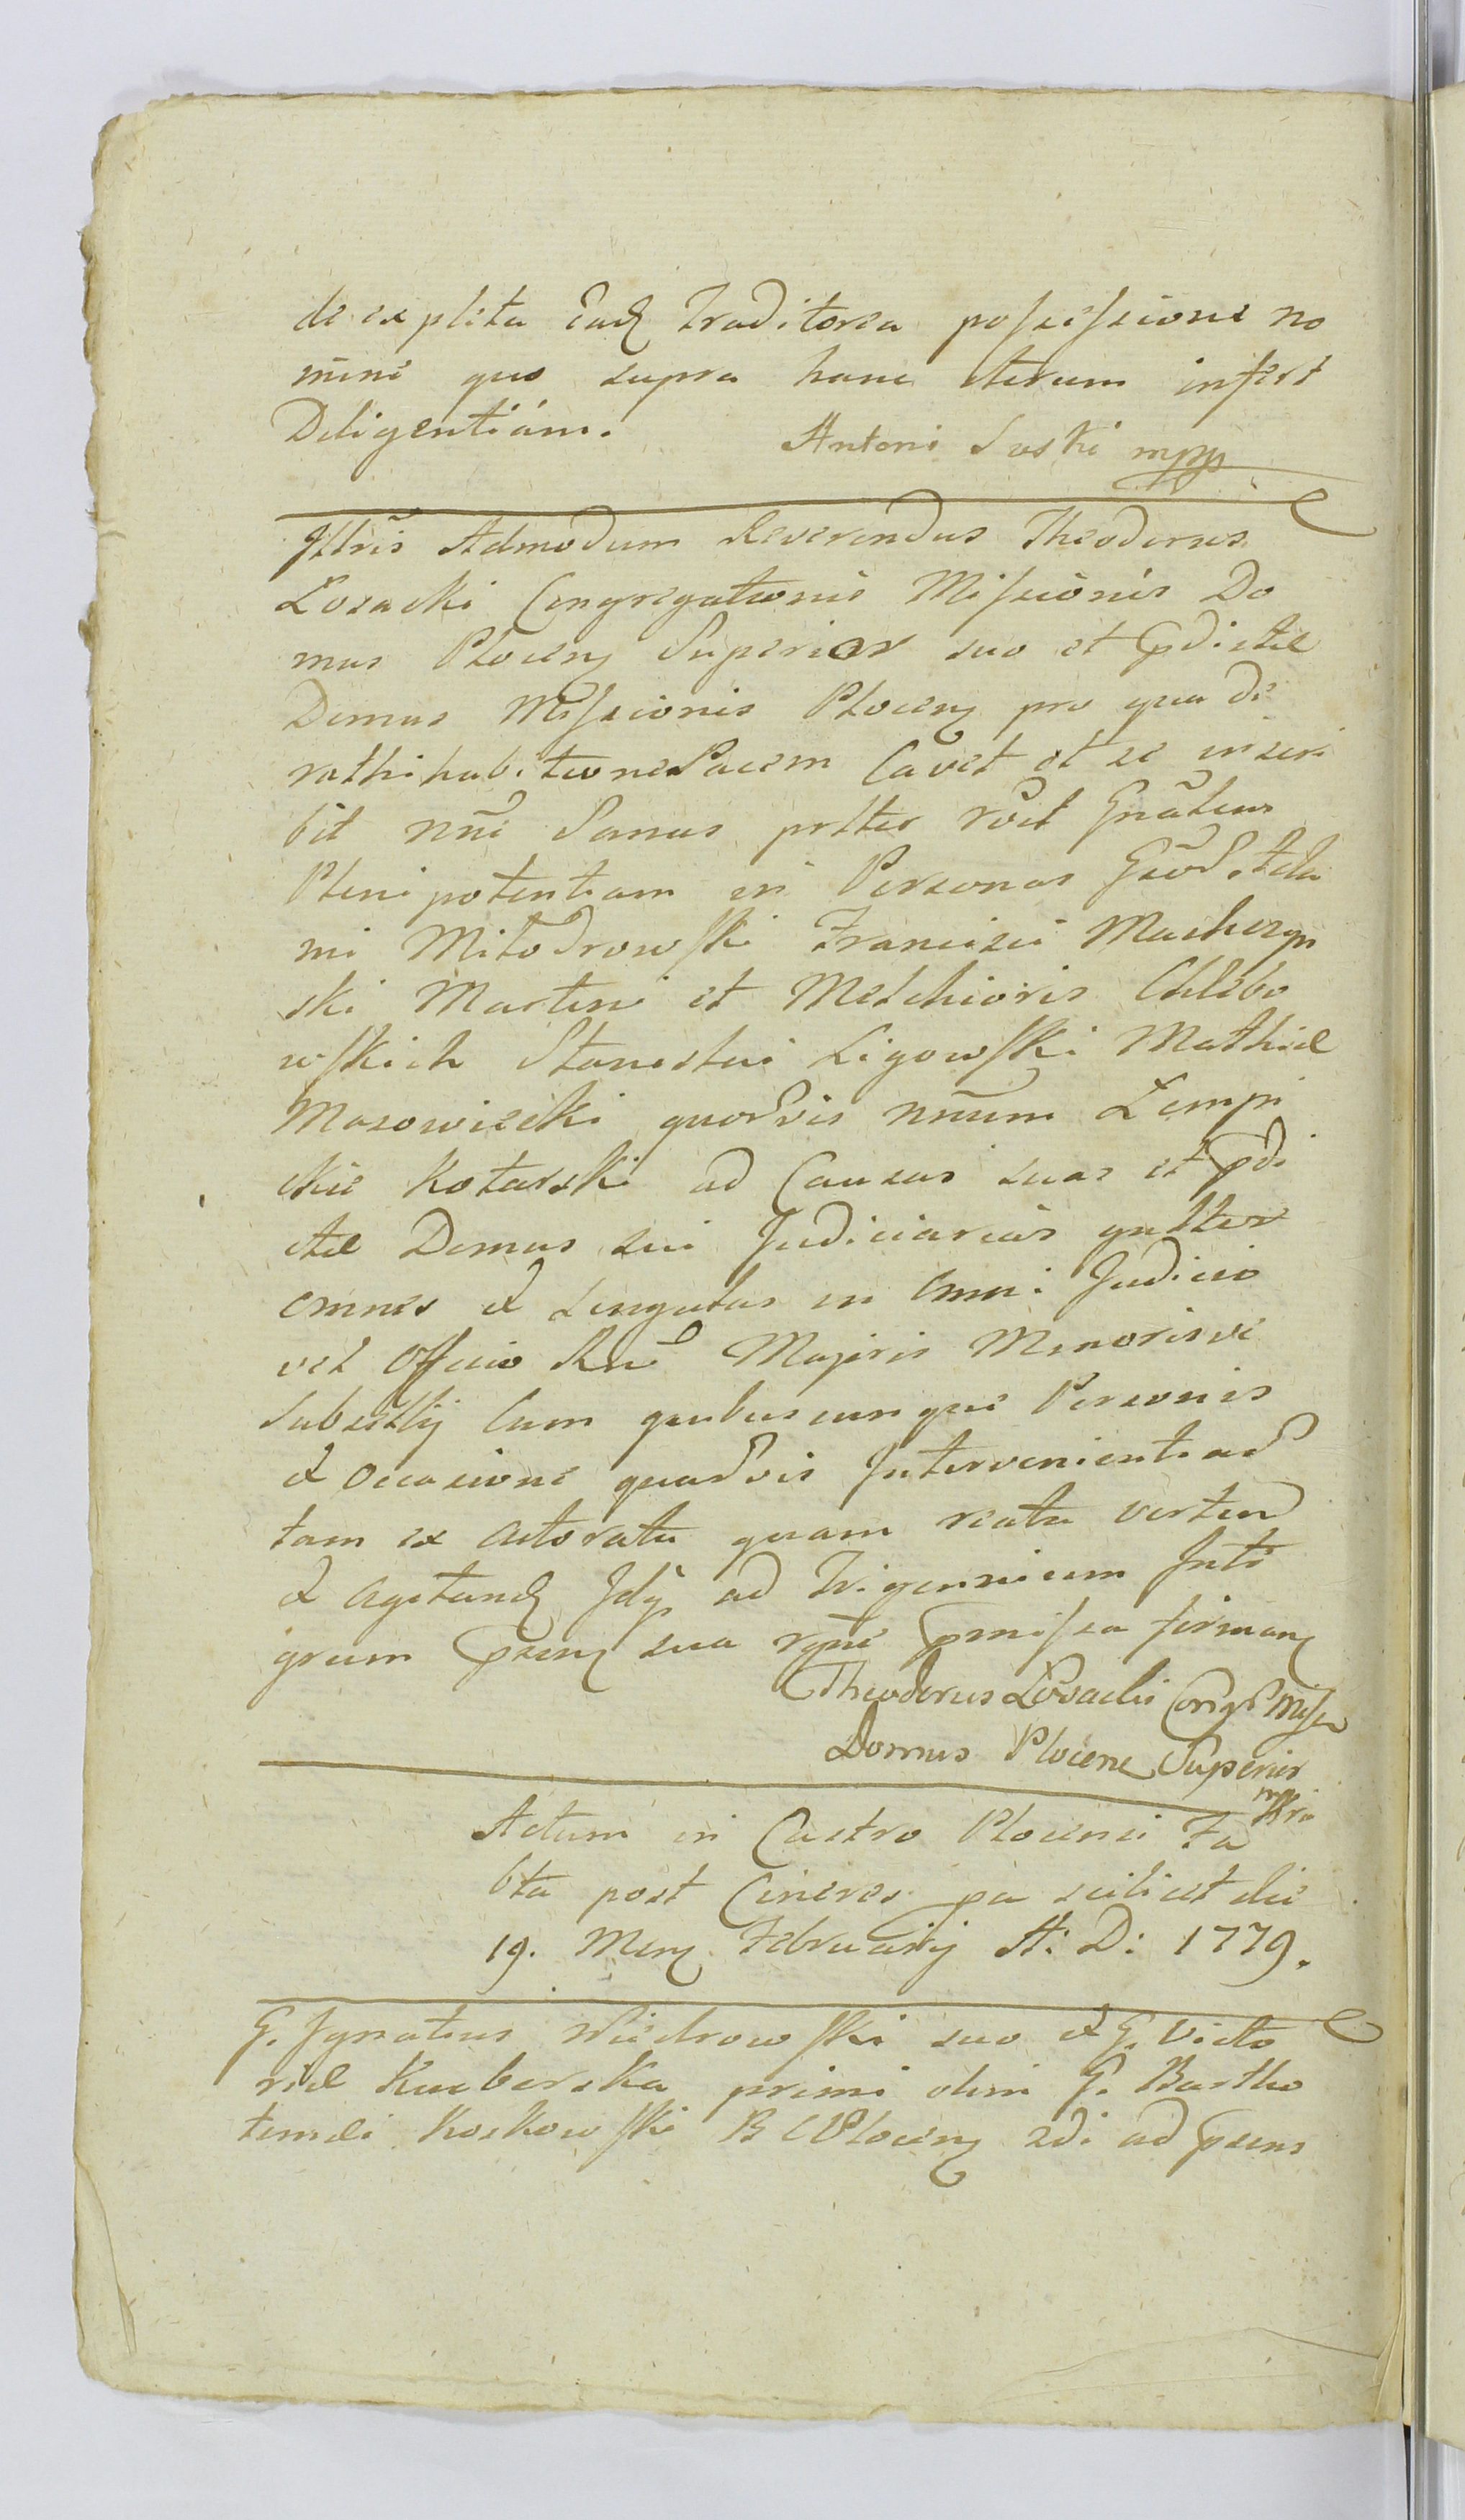 de explita Ead Traditorea possessione no
mine quo supra hanc iterum infert
Diligentiam.
Antoni Suski mpp
Illris Admodum Reverendus Theodorus
Łosacki Congregationis Missionis Do
mus Plocen Superior suo et pdictæ
Domus Missionis Plocen pro qua de
rathihabitione Pacem Cavet et se inscri
bit nne Sanus prtter
Plenipotentiam in Personas Gsod Ada
mi Miłodrowski Francisci Machczyn
ski Martini et Melchioris Chlebo
wskich Stanislai Ligowski Mathiæ
Mazowiecki quorvis nnum Łempi
ckie Kotarski ad Causas suas et pdi
ctæ Domus sui Judiciarias gnlter
omnes et Singulas in Omni Judicio
vel Officio Rni Majoris Minorisve
Subsellij Cum quibuscunque Personis
et Occasione quarvis Intervenientiad
tam ex Actoratu quam reatu verten
et Agitand Idq ad Trigennium Inte
grum psens sua pmissa firman
Theodorus Łosacki Congr Missi
Domus Plocene Superior
mpria
Actum in Castro Plocensi Fa
bta post Cineres pa scilicet die
19. Mens Februarij A: D: 1779.
G. Ignatius Niedrowski suo et G. Victo
riæ Kucborska primi olim G. Bartho
lemæi Koskowski B C Plocen 2di ad psens